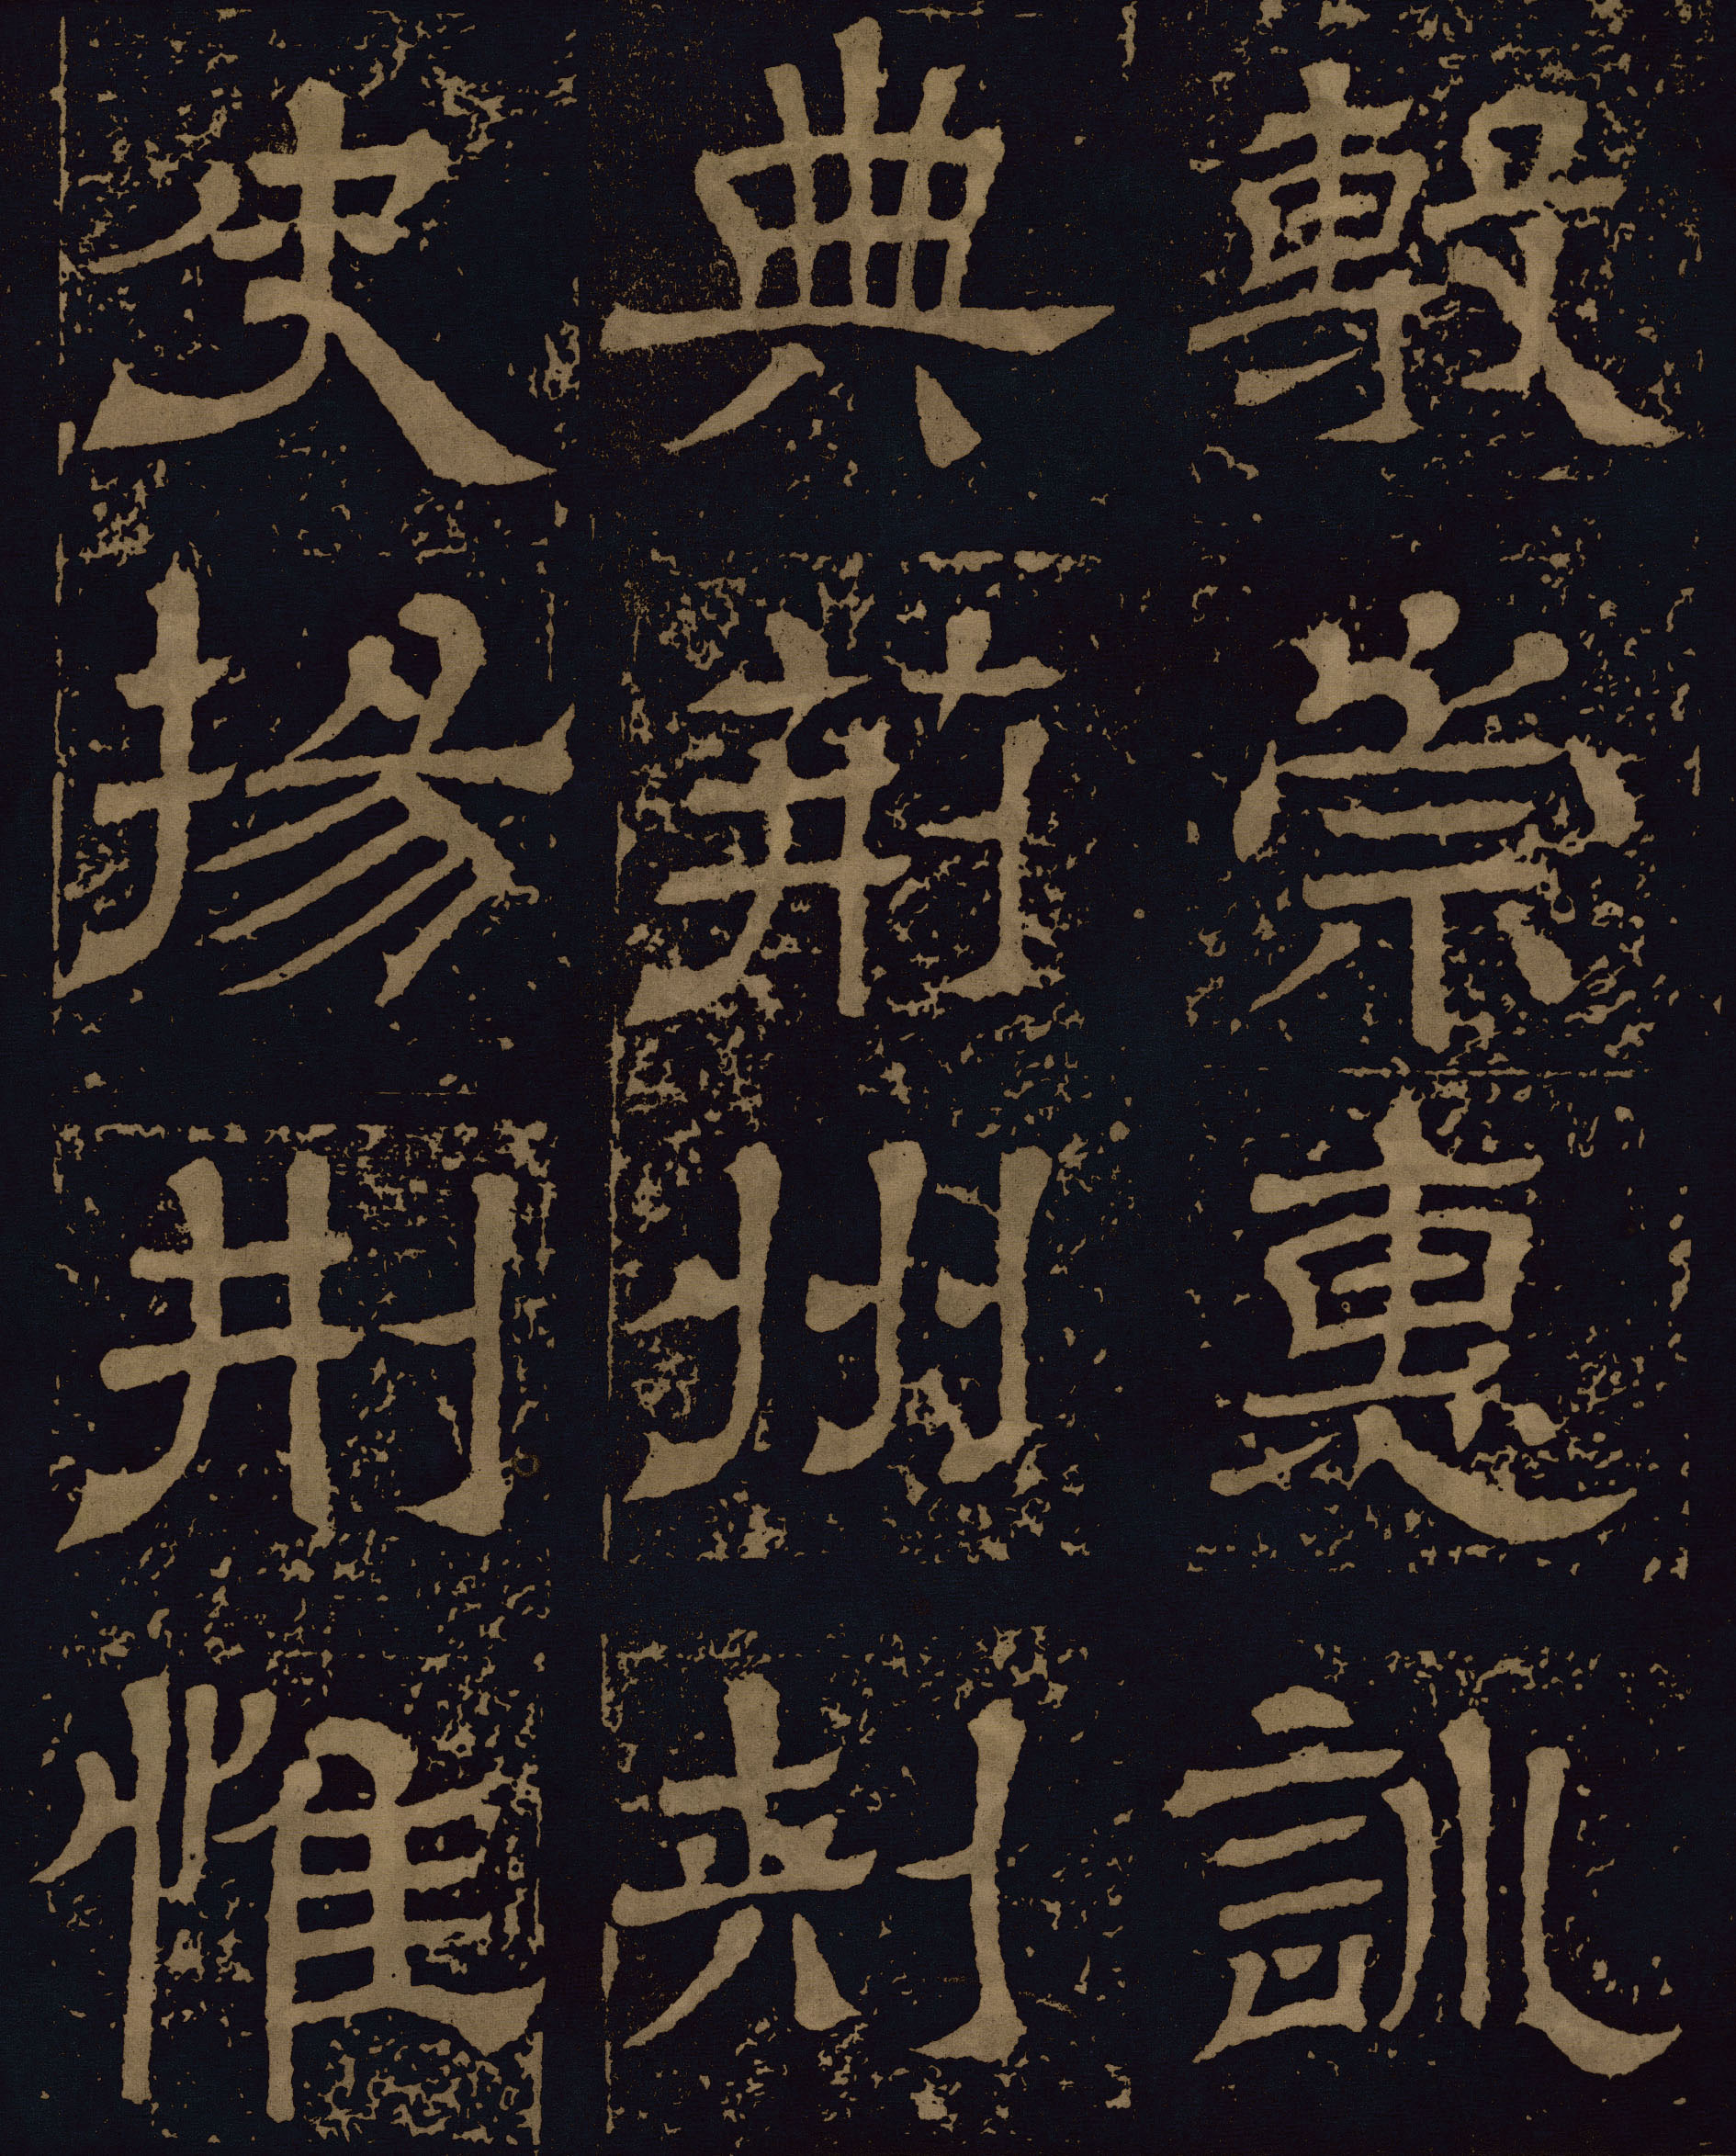 敷崇惠訓
典荊州刺
史揚刑惟